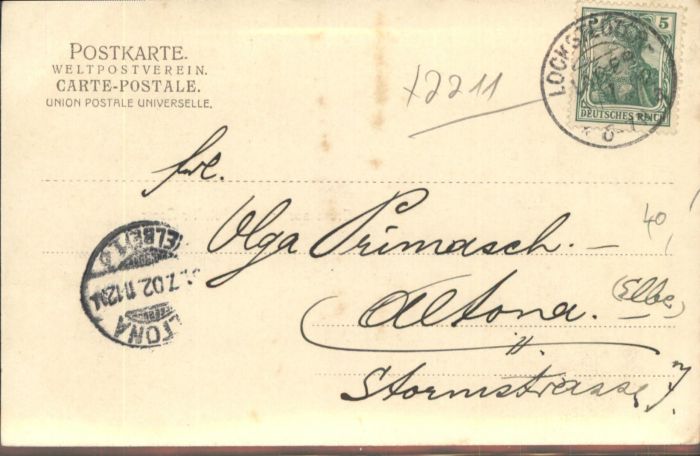 POSTKARTE.
WELTPOSTVEREIN.
CARTE-POSTALE.
UNION POSTALE UNIVERSELLE.
x2211
5
DEUTSCHES REICH
LOCKSTEDTER
Frl.
Olga Primasch.
40
Altona. (Elbe)
Stormstrasse 7.
ALTONA
(ELBE) 1
7.02. 11-12